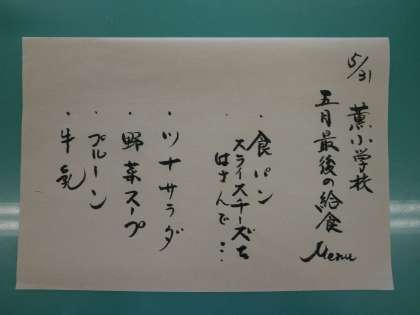 5/31
薫小学校
五月最後の給食
Menu
・食パン
スライスチーズを
はさんで…
・ツナサラダ
・野菜スープ
・プルーン
・牛乳